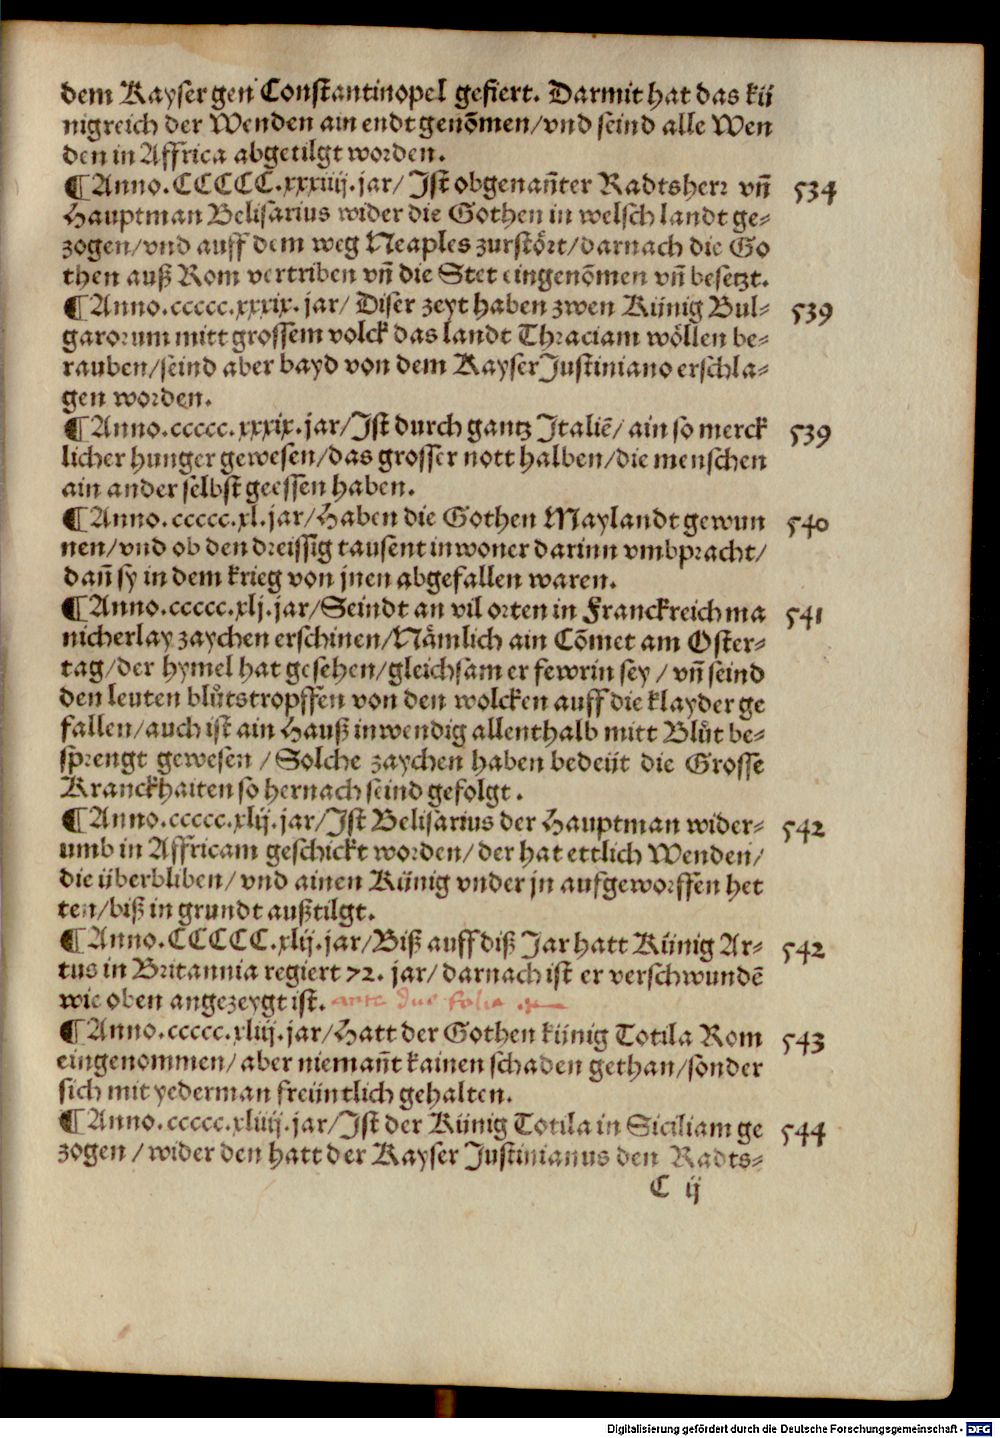 dem Kayser gen Constantinopel gefiert. Darmit hat das kü
nigreich der Wenden ain endt genōmen/vnd seind alle Wen
den in Affrica abgetilgt worden.
¶Anno.CCCCC.xxxiiij.jar/Ist obgenañter Radtsherꝛ vñ 534
Hauptman Belisarius wider die Gothen in welsch landt ge⸗
zogen/vnd auff dem weg Neaples zurstoͤrt/darnach die Go
then auß Rom vertriben vñ die Stet eingenōmen vñ besetzt.
¶Anno.ccccc.xxxix.jar/Diser zeyt haben zwen Künig Bul⸗ 539
garorum mitt grossem volck das landt Thraciam woͤllen be⸗
rauben/seind aber bayd von dem Kayser Justiniano erschla⸗
gen worden.
¶Anno.ccccc.xxxix.jar/Ist durch gantz Italiē/ain so merck 539
licher hunger gewesen/das grosser nott halben/die menschen
ain ander selbst geessen haben.
¶Anno.ccccc.xl.jar/Haben die Gothen Maylandt gewun 540
nen/vnd ob den dreissig tausent inwoner darinn vmbpracht/
dañ sy in dem krieg von jnen abgefallen waren.
¶Anno.ccccc.xlj.jar/Seindt an vil orten in Franckreich ma 541
nicherlay zaychen erschinen/Naͤmlich ain Cōmet am Oster⸗
tag/der hymel hat gesehen/gleichsam er fewrin sey/vñ seind
den leuten bluͦtstropffen von den wolcken auff die klayder ge
fallen/auch ist ain Hauß inwendig allenthalb mitt Bluͦt be⸗
sprengt gewesen/Solche zaychen haben bedeüt die Grosse
Kranckhaiten so hernach seind gefolgt.
¶Anno.ccccc.xlij.jar/Ist Belisarius der Hauptman wider⸗ 542
umb in Affricam geschickt worden/der hat ettlich Wenden/
die überbliben/vnd ainen Künig vnder jn aufgeworffen het
ten/biß in grundt außtilgt.
¶Anno.CCCCC.xlij.jar/Biß auff diß Jar hatt Künig Ar⸗ 542
tus in Britannia regiert 72.jar/darnach ist er verschwundē
wie oben angezeygt ist. ante duo folia
¶Anno.ccccc.xliij.jar/Hatt der Gothen künig Totila Rom 543
eingenommen/aber niemañt kainen schaden gethan/sonder
sich mit yederman freüntlich gehalten.
¶Anno.ccccc.xliiij.jar/Ist der Künig Totila in Siciliam ge 544
zogen/wider den hatt der Kayser Justinianus den Radts⸗
C ij
Digitalisierung gefördert durch die Deutsche Forschungsgemeinschaft - DFG